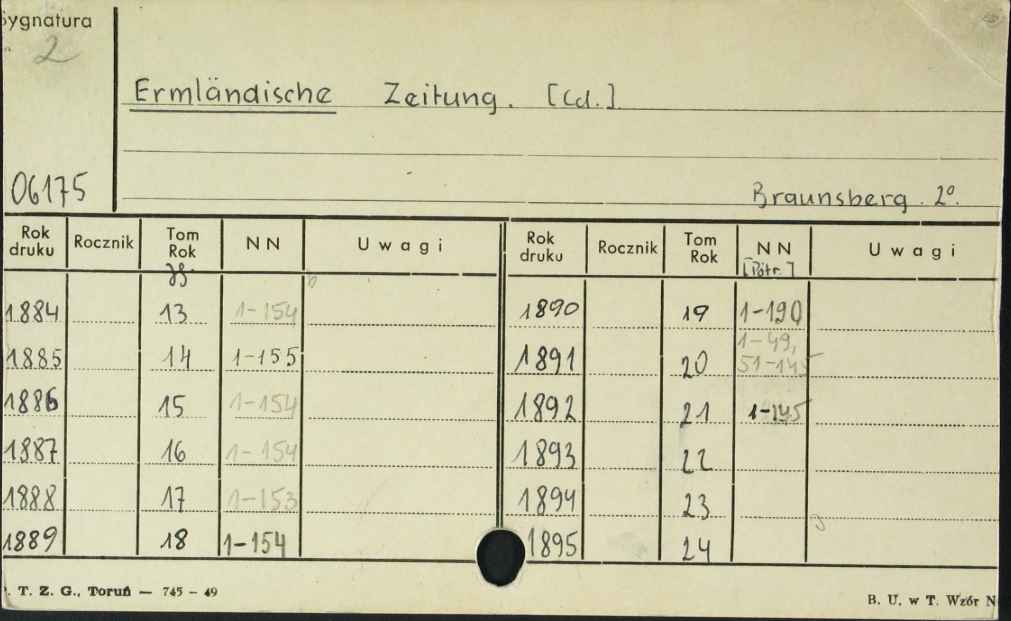 Sygnatura
2
Ermländische Zeitung. [Cd.]
06175
Braunsberg. 2º.
Rok druku Rocznik Tom Rok NN Uwagi Rok druku Rocznik Tom Rok NN Uwagi
Jg. [Półr.]
1884 13 1-154 1890 19 1-190
1885 14 1-155 1891 20 1-49, 51-145
1886 15 1-154 1892 21 1-145
1887 16 1-154 1893 22
1888 17 1-153 1894 23
1889 18 1-154 1895 24
. T. Z. G., Toruń — 745 - 49
B. U. w T. Wzór N